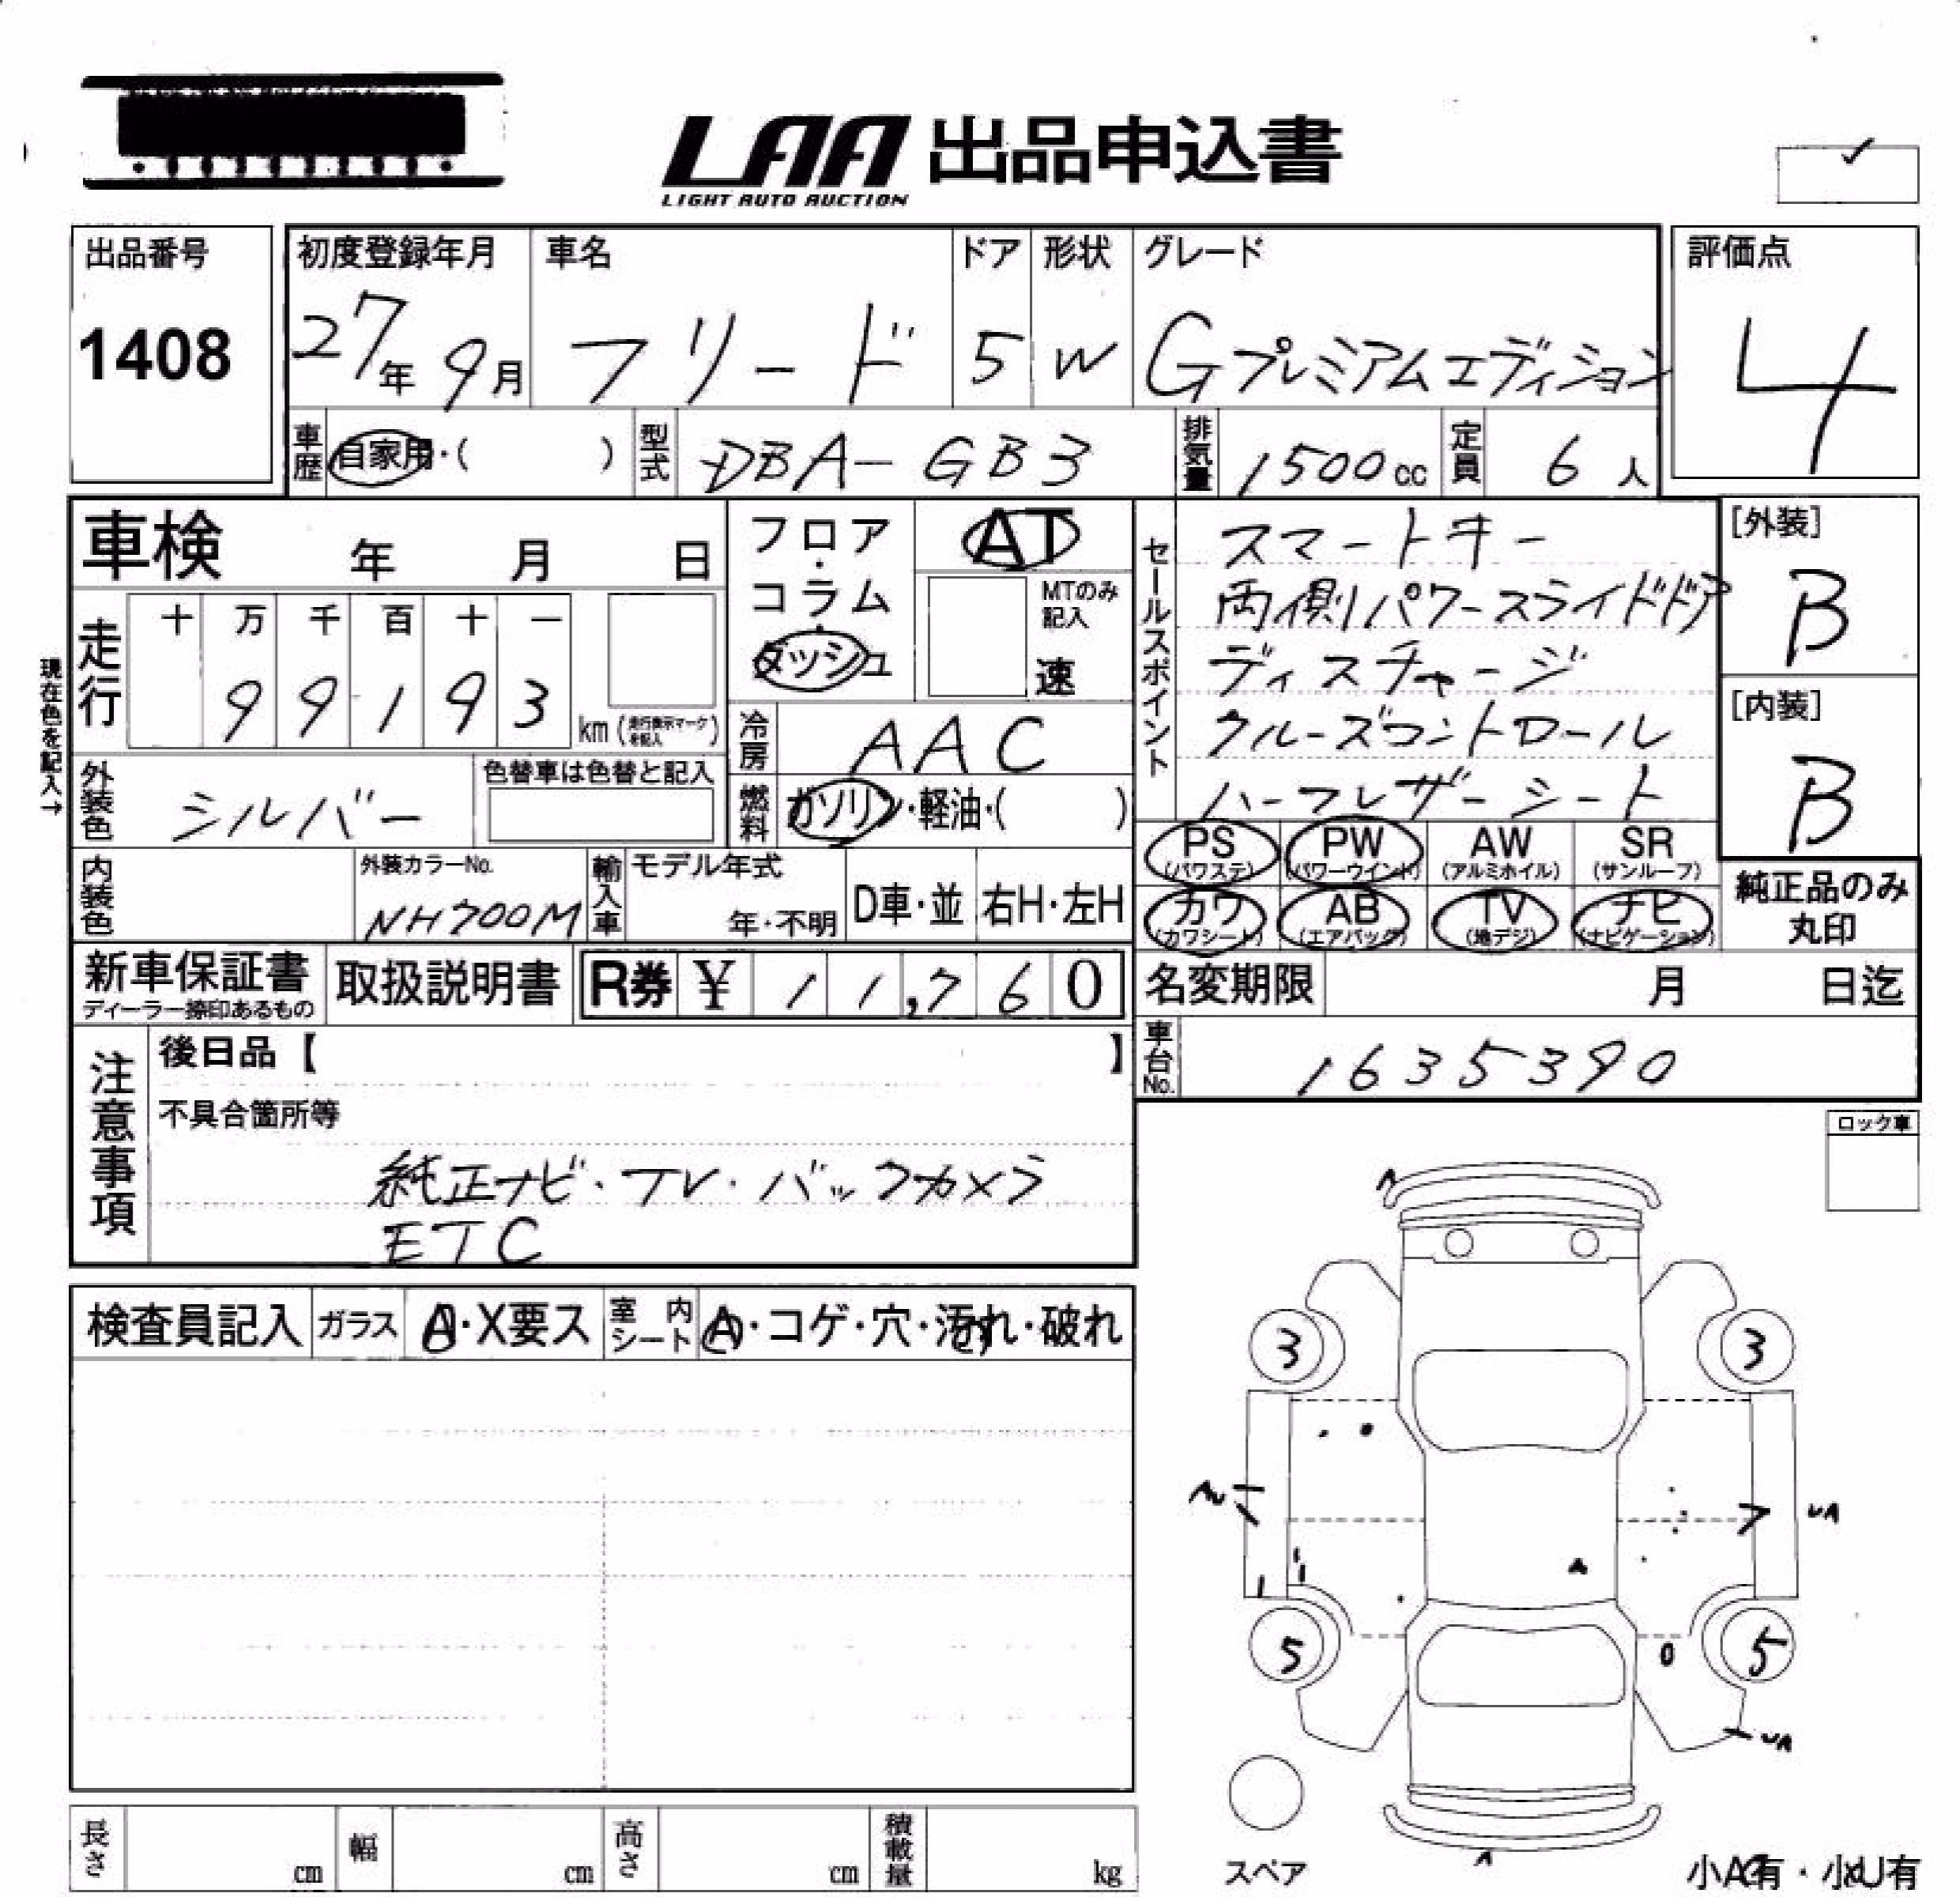 LAA 出品申込書
LIGHT AUTO AUCTION
出品番号
1408
初度登録年月 車名 ドア 形状 グレード 評価点
27年 9月 フリード 5 W Gプレミアムエディション 4
車歴 自家用・( ) 型式 DBA-GB3 排気量 1500cc 定員 6人
車検 年 月 日
フロア・コラム・ダッシュ
AT
MTのみ記入
速
現在色を記入→
走行 十 万 千 百 十 一
99193 km (走行表示マークを記入)
冷房 AAC
外装色 シルバー 色替車は色替と記入
燃料 ガソリン・軽油・( )
内装色 外装カラーNo. NH700M
輸入車 モデル年式 年・不明 D車・並 右H・左H
セールスポイント
スマートキー
両側パワースライドドア
ディスチャージ
クルーズコントロール
ハーフレザーシート
[外装]
B
[内装]
B
PS (パワステ) PW (パワーウインド) AW (アルミホイル) SR (サンルーフ)
カワ (カワシート) AB (エアバック) TV (地デジ) ナビ (ナビゲーション)
純正品のみ
丸印
新車保証書 取扱説明書 R券 ¥ 11,760
ディーラー捺印あるもの
名変期限 月 日迄
車台No. 1635390
注意事項
後日品【 】
不具合箇所等
純正ナビ・TV・バックカメラ
ETC
ロック車
検査員記入 ガラス A・X要ス 室内シート A・コゲ・穴・汚れ・破れ
3 3
UA
5 5
UA
スペア
長さ cm 幅 cm 高さ cm 積載量 kg